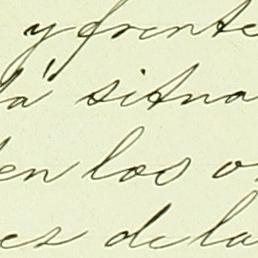 y frente
tá situa
en los o
es de la